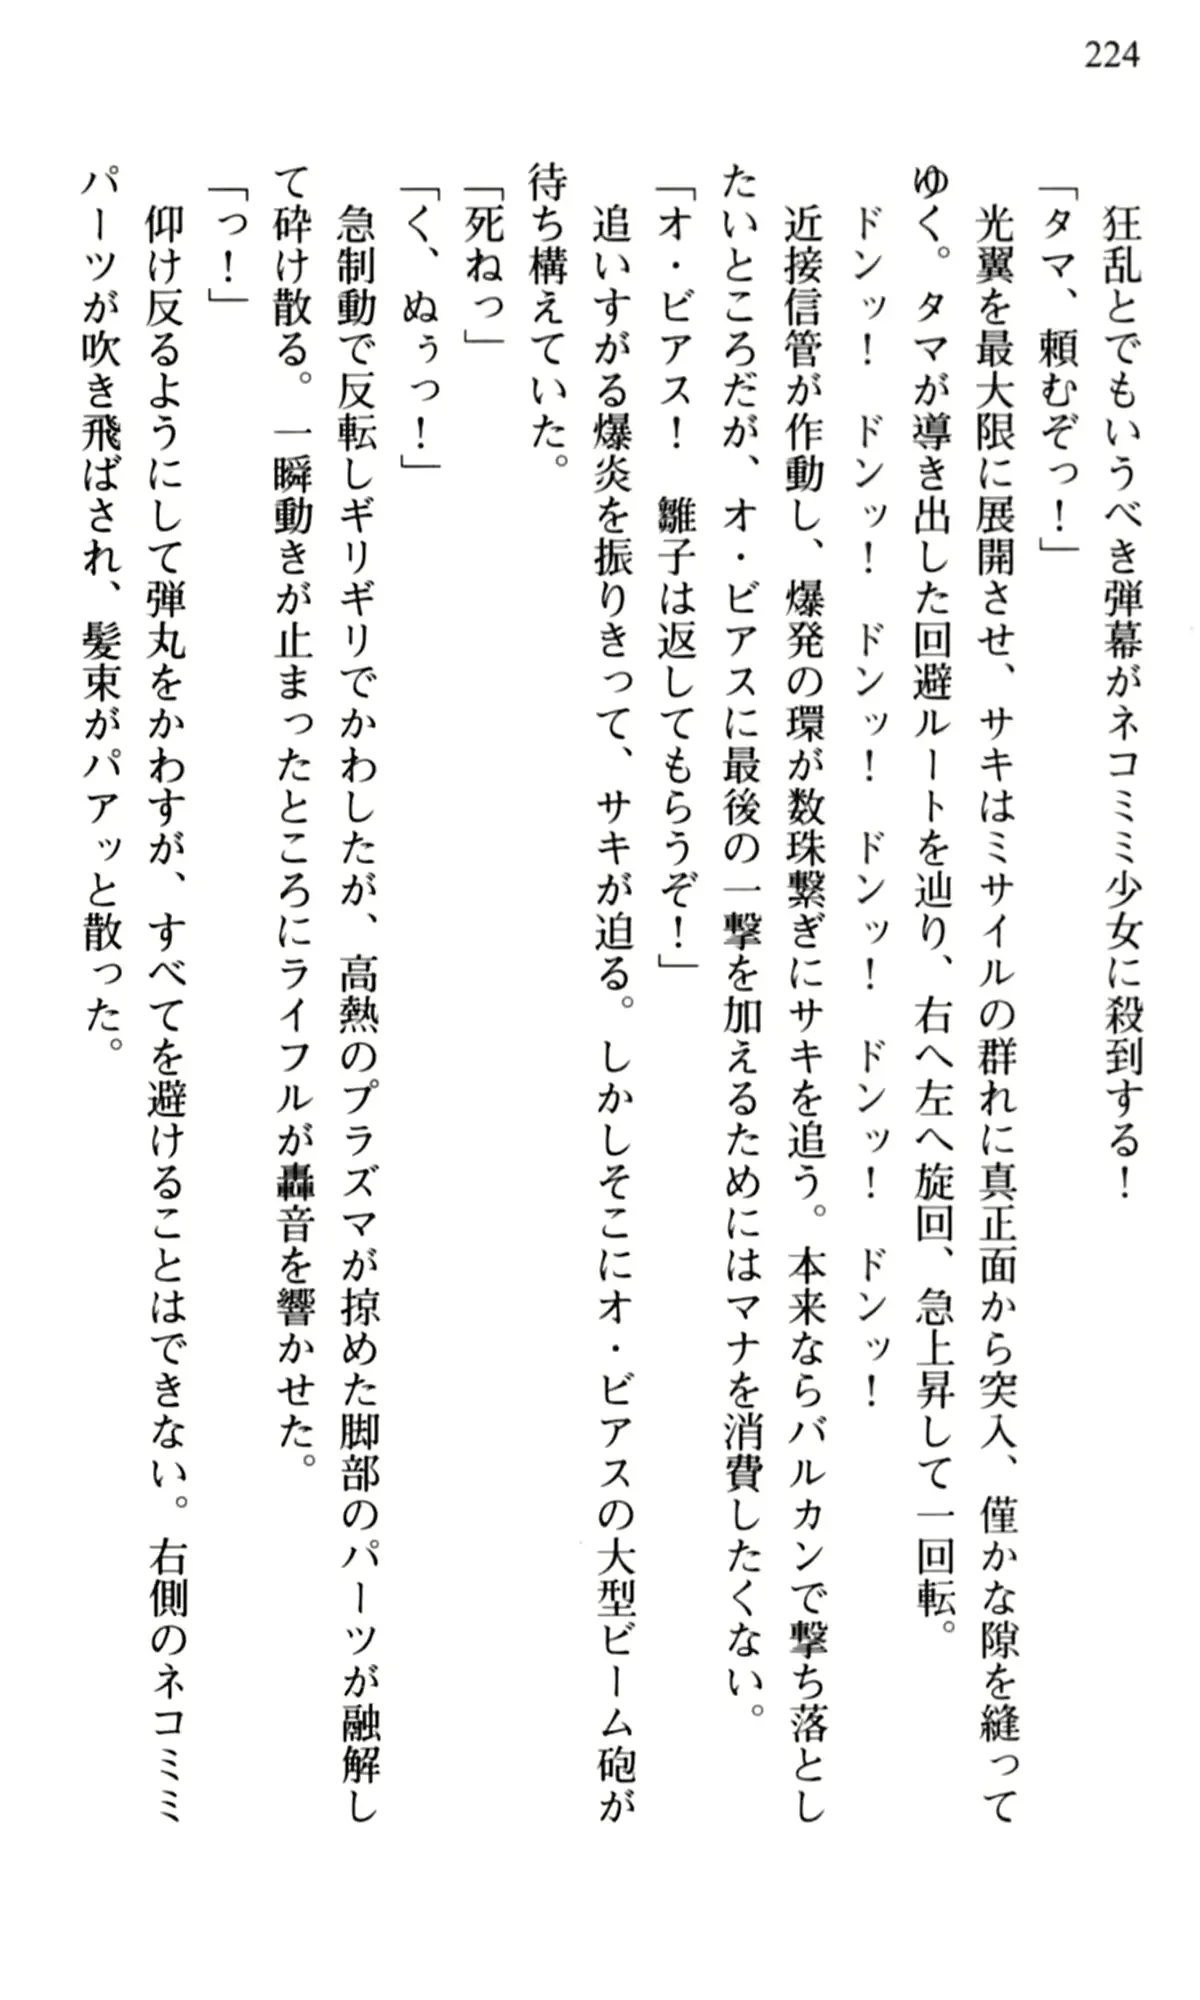 224
狂乱とでもいうべき弾幕がネコミミ少女に殺到する！
「タマ、頼むぞっ！」
光翼を最大限に展開させ、サキはミサイルの群れに真正面から突入、僅かな隙を縫って
ゆく。タマが導き出した回避ルートを辿り、右へ左へ旋回、急上昇して一回転。
ドンッ！　ドンッ！　ドンッ！　ドンッ！　ドンッ！　ドンッ！
近接信管が作動し、爆発の環が数珠繋ぎにサキを追う。本来ならバルカンで撃ち落とし
たいところだが、オ・ビアスに最後の一撃を加えるためにはマナを消費したくない。
「オ・ビアス！　雛子は返してもらうぞ！」
追いすがる爆炎を振りきって、サキが迫る。しかしそこにオ・ビアスの大型ビーム砲が
待ち構えていた。
「死ねっ」
「く、ぬぅっ！」
急制動で反転しギリギリでかわしたが、高熱のプラズマが掠めた脚部のパーツが融解し
て砕け散る。一瞬動きが止まったところにライフルが轟音を響かせた。
「っ！」
仰け反るようにして弾丸をかわすが、すべてを避けることはできない。右側のネコミミ
パーツが吹き飛ばされ、髪束がパアッと散った。